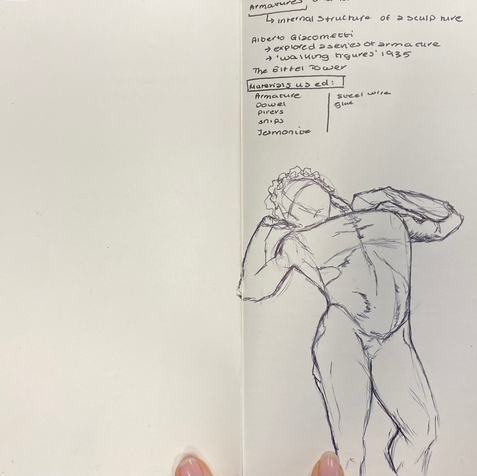 Armatures
↳ internal structure of a sculpture
Alberto Giacometti
→ explored a series of armature
→ 'walking figures' 1935
The Eiffel Tower
Materials used:
Armature
Dowel
Pliers
snips
Jesmonite
steel wire
glue